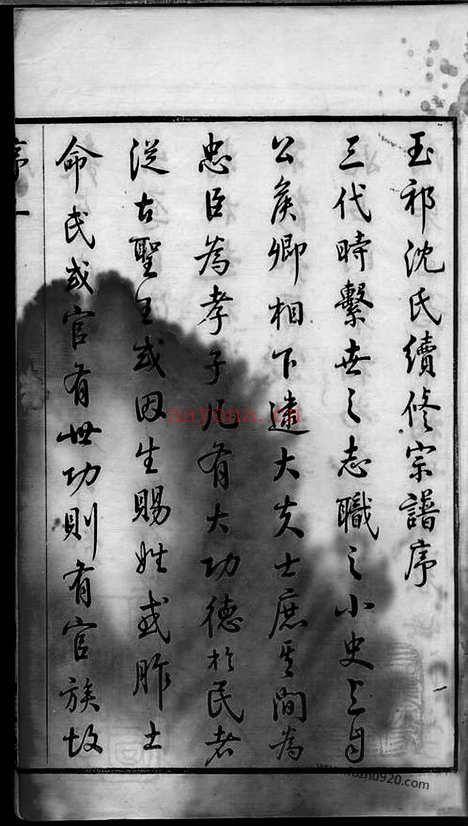 玉祁沈氏續修宗譜序
三代時繫世之志職之小史上自
公侯卿相下逮大夫士庶其間為
忠臣為孝子凡有大功德於民者
從古聖王或因生賜姓或胙土
命氏或官有世功則有官族故
序 一
一
nayona.cn